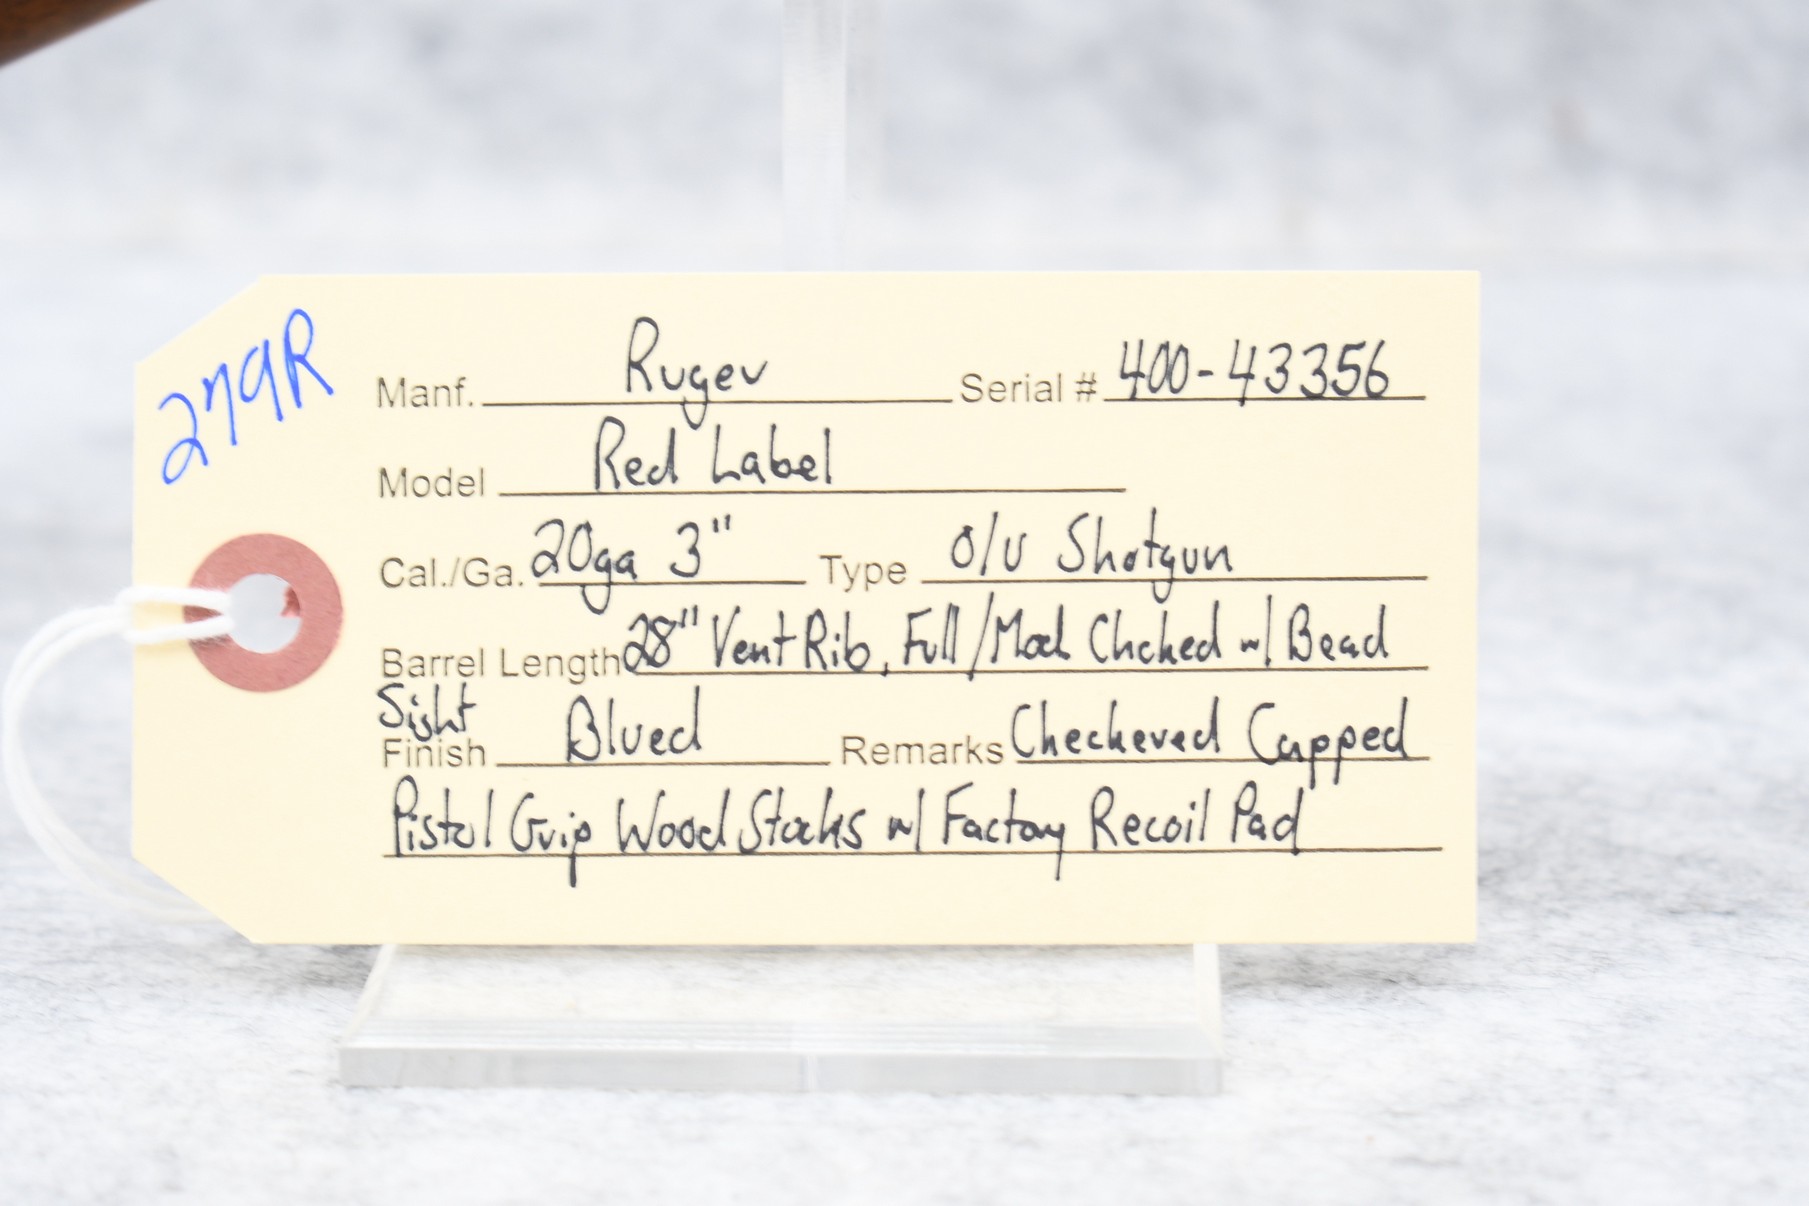 279R
Manf. Ruger Serial # 400-43356
Model Red Label
Cal./Ga. 20ga 3" Type O/U Shotgun
Barrel Length 28" Vent Rib, Full/Mod Choked w/ Bead
Sight
Finish Blued Remarks Checkered Capped
Pistol Grip Wood Stocks w/ Factory Recoil Pad